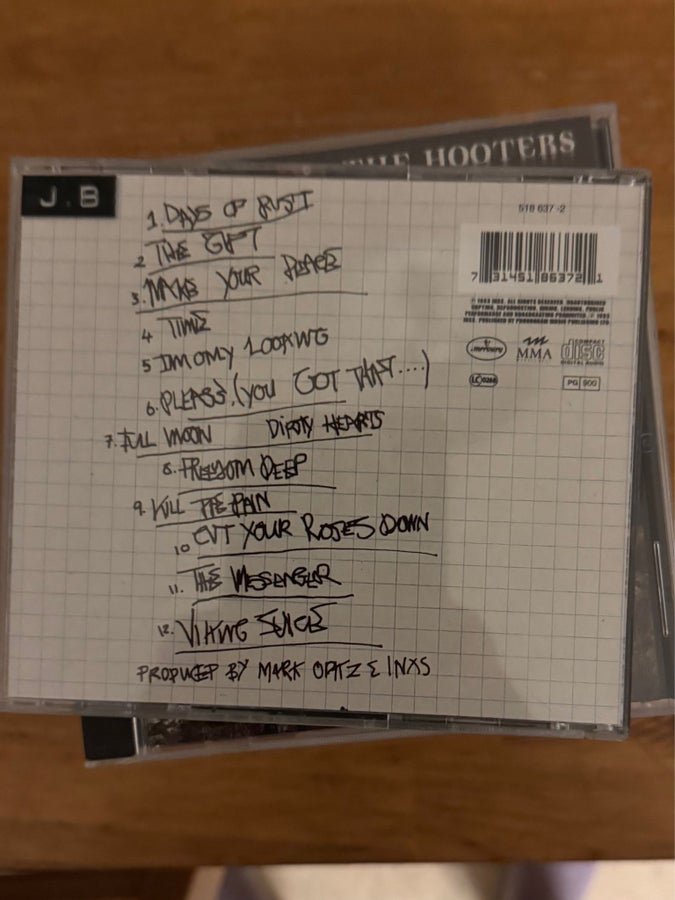 THE HOOTERS
J.B
518 637-2
7 31451 86372 1
1. DAYS OF RUST
2 THE GIFT
3. MAKE YOUR PEACE
4 TIME
5 IM ONLY LOOKING
6. PLEASE.(YOU GOT THAT....)
7. FULL MOON DIRTY HEARTS
8. FREEDOM DEEP
9. KILL THE PAIN
10 CUT YOUR ROSES DOWN
11. THE MESSENGER
12. VIKING JUICE
PRODUCED BY MARK OPITZ & INXS
ALL RIGHTS RESERVED. UNAUTHORISED
COPYING, REPRODUCTION, HIRING, LENDING, PUBLIC
PERFORMANCE AND BROADCASTING PROHIBITED. 1993
PUBLISHED BY POLYGRAM MUSIC PUBLISHING LTD.
mercury
MMA
COMPACT
disc
DIGITAL AUDIO
LC 0268
PG 900